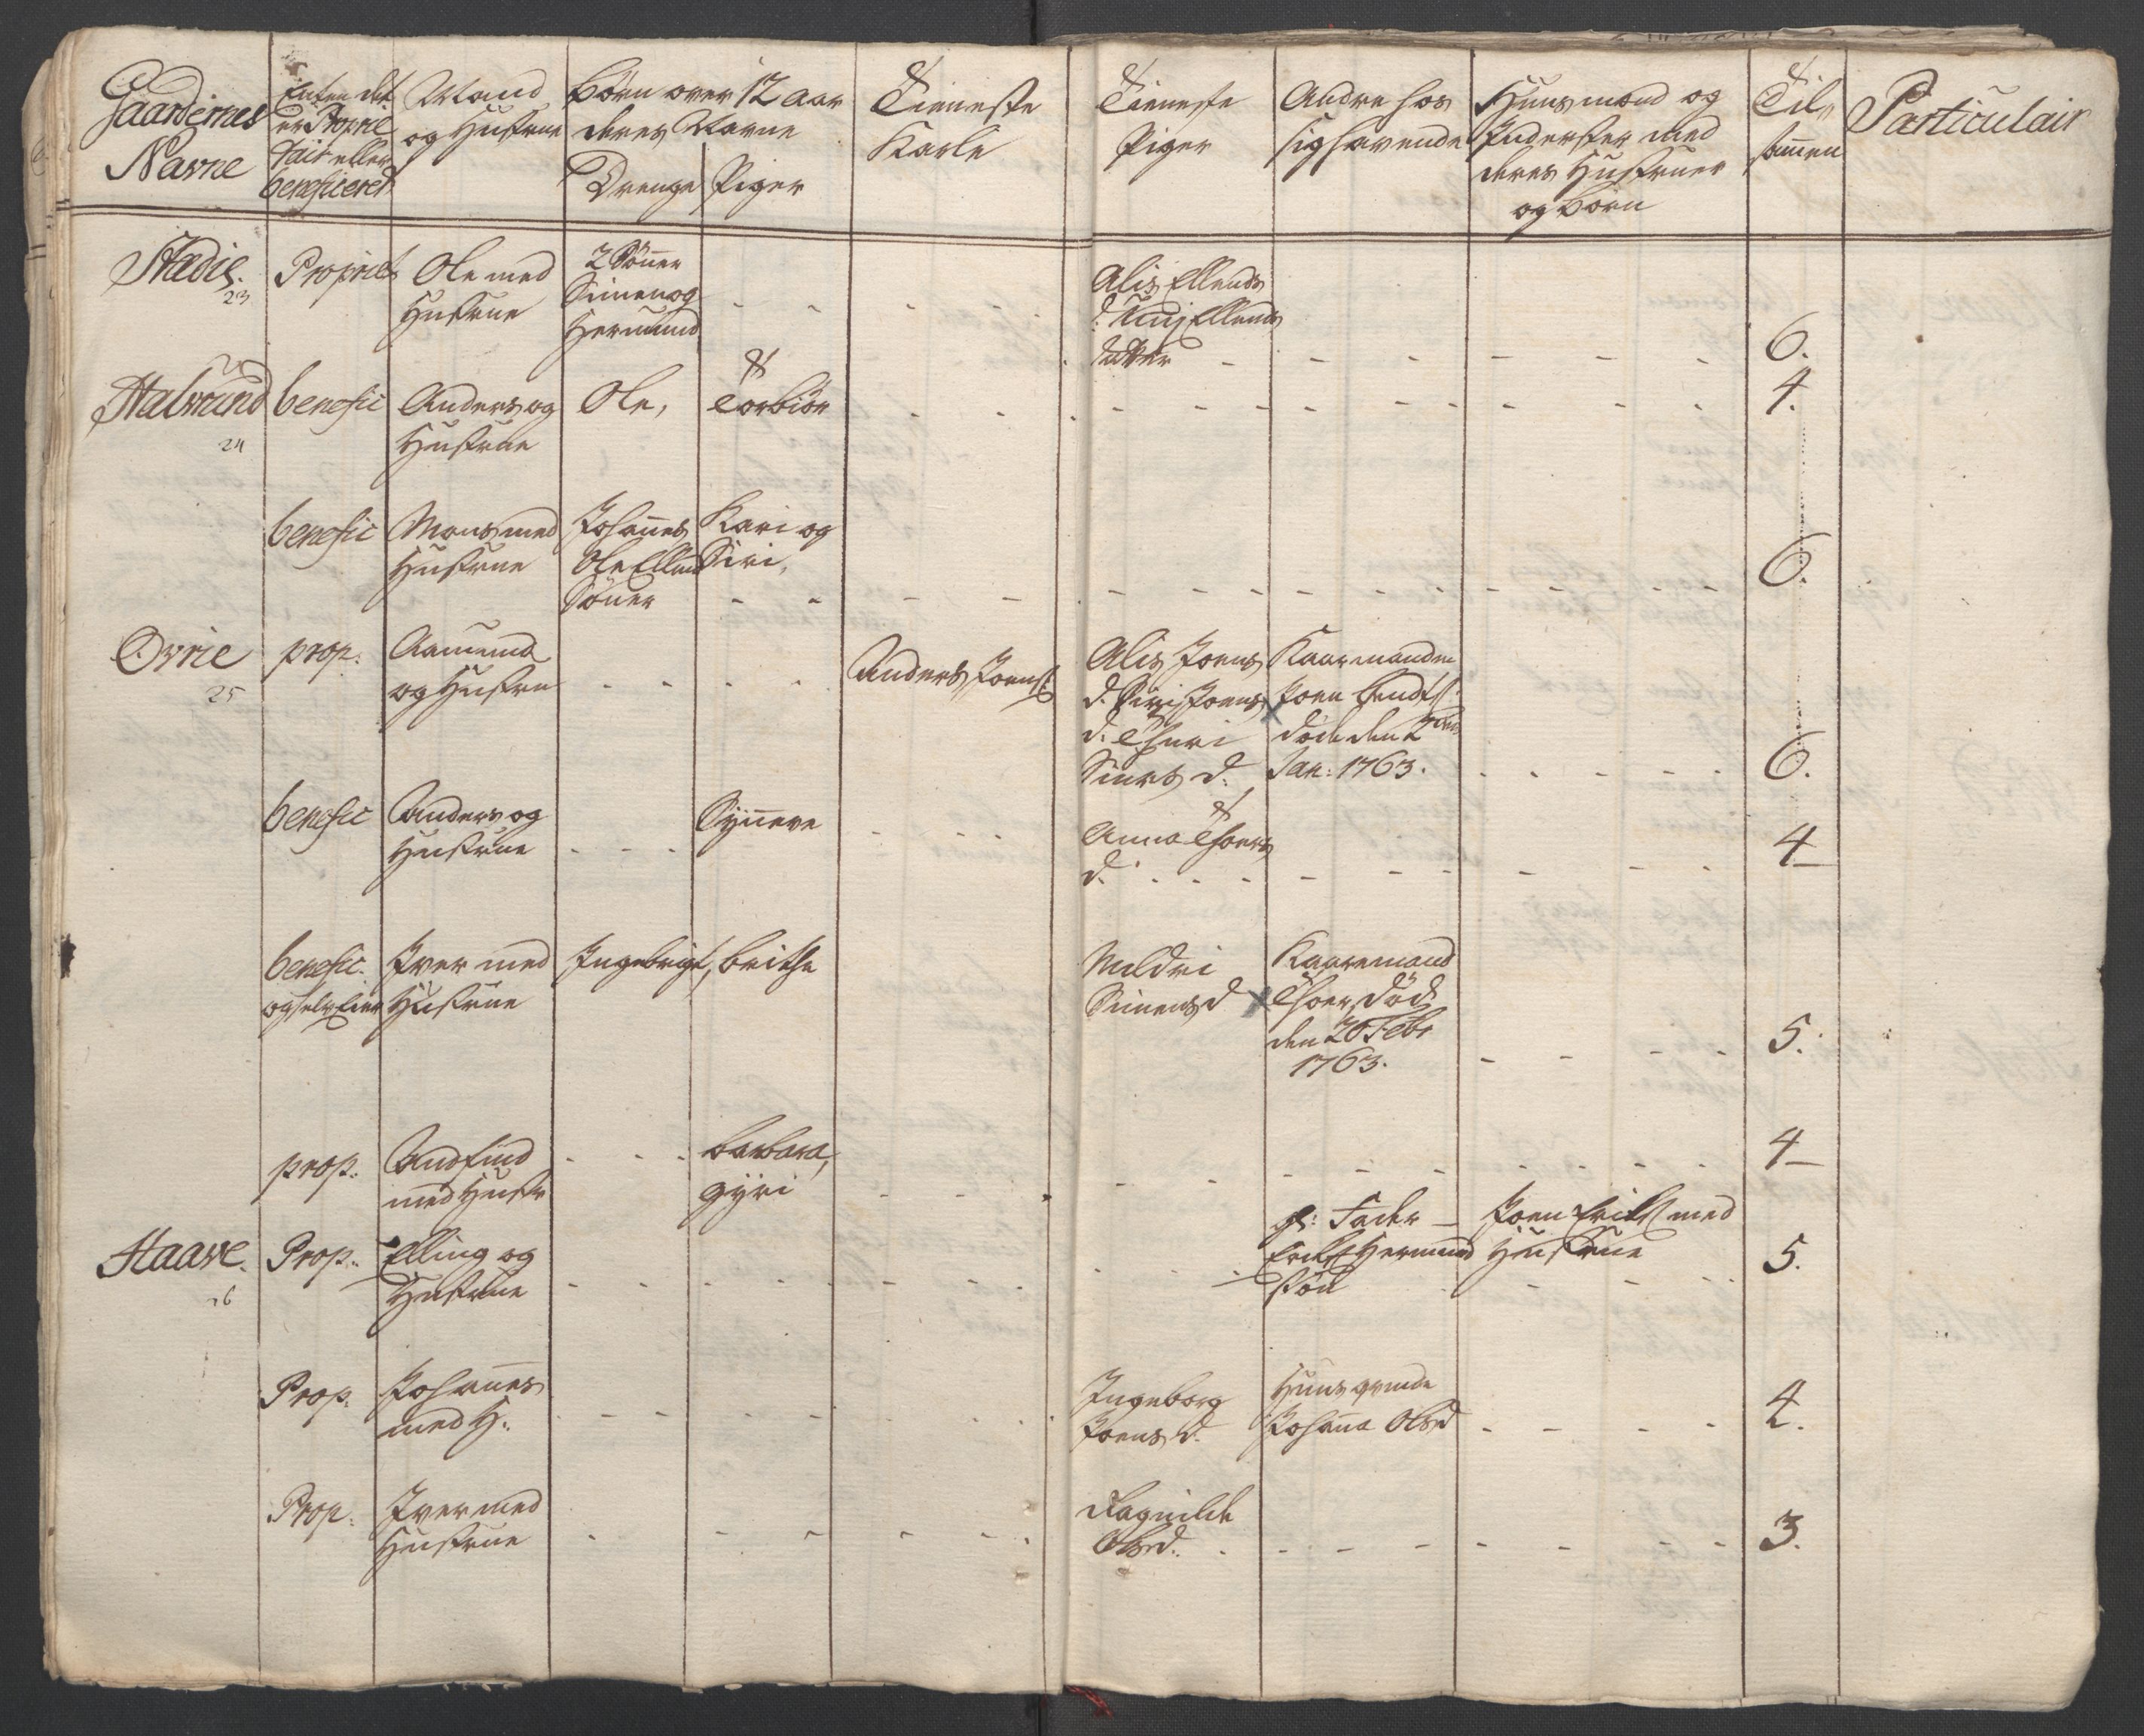 Gaardernes
Navne
Enten det
er Proprie
tair eller
beneficered
Mand
og Hustrue
Børn over 12 aar
deres Navne
Drenge Piger
Tieneste
Karle
Tieneste
Piger
Andre hos
sig havende
Huusmænd og
Inderster med
deres Hustruer
og Børn
Til
sammen
Particulair
Stadie.
23
Propriet
Ole med
Hustrue
2 Sönner
Simen og
Hermund
Alis Ellends
d:
Ellends
datter
6.
Halvrund
24
benefic
Anders og
Hustrue
Ole,
Torbiör
4.
benefic
Mons med
Hustrue
Johannes
Ole Ellend
Söner
Kari og
Siri,
6.
Ovrie
25
prop:
Aamund
og Hustru
Anders Joens:
Alis Joens
d. Siri Joens
d. Thuri
Simens d:
Kaarmanden
Joen Bendts:
döde den 2den
Jan: 1763.
6.
benefic
Anders og
Hustrue
Synneve
Anna Thoers
d.
4
benefic.
og selv Eier
Iver med
Hustrue
Ingebrigt,
Brithe
Mildri
Simens d
Kaarmand
Thoer död
den 26 Febr
1763.
5.
prop:
Andfind
med Hustr
Barbara,
Gyri
4
Haave.
26
Prop:
Elling og
Hustrue
gl: Fader
Erik Hermund
sön
Joen Eriks med
Hustrue
5.
Prop.
Johannes
med H:
Ingeborg
Joens d.
Huus qvinde
Johanna Olsd
4.
Prop:
Iver med
Hustrue
Ragnilde
Olsd:
3.